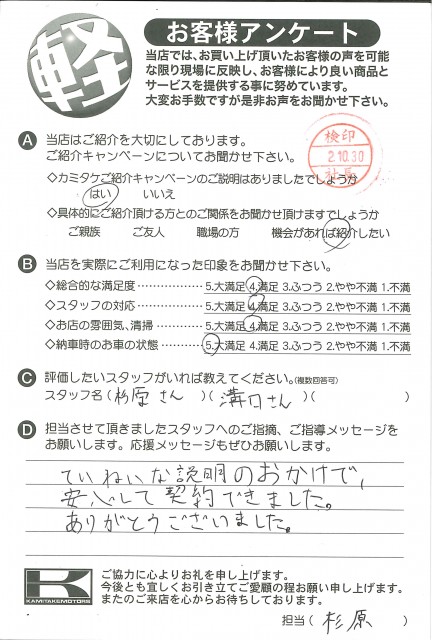 軽
お客様アンケート
当店では、お買い上げ頂いたお客様の声を可能
な限り現場に反映し、お客様により良い商品と
サービスを提供する事に努めています。
大変お手数ですが是非お声をお聞かせ下さい。
検印
2.10.30
社長
A 当店はご紹介を大切にしております。
ご紹介キャンペーンについてお聞かせ下さい。
◇カミタケご紹介キャンペーンのご説明はありましたでしょうか
はい いいえ
◇具体的にご紹介頂ける方とのご関係をお聞かせ頂けますでしょうか
ご親族 ご友人 職場の方 機会があれば紹介したい
B 当店を実際にご利用になった印象をお聞かせ下さい。
◇総合的な満足度 5.大満足 4.満足 3.ふつう 2.やや不満 1.不満
◇スタッフの対応 5.大満足 4.満足 3.ふつう 2.やや不満 1.不満
◇お店の雰囲気、清掃 5.大満足 4.満足 3.ふつう 2.やや不満 1.不満
◇納車時のお車の状態 5.大満足 4.満足 3.ふつう 2.やや不満 1.不満
C 評価したいスタッフがいれば教えてください。(複数回答可)
スタッフ名(杉原さん)(溝口さん)( )
D 担当させて頂きましたスタッフへのご指摘、ご指導メッセージを
お願いします。応援メッセージもぜひお願いします。
ていねいな説明のおかげで、
安心して契約できました。
ありがとうございました。
K
KAMITAKEMOTORS
ご協力に心よりお礼を申し上げます。
今後とも宜しくお引き立てご愛顧の程お願い申し上げます。
またのご来店を心からお待ちしております。
担当(杉原)